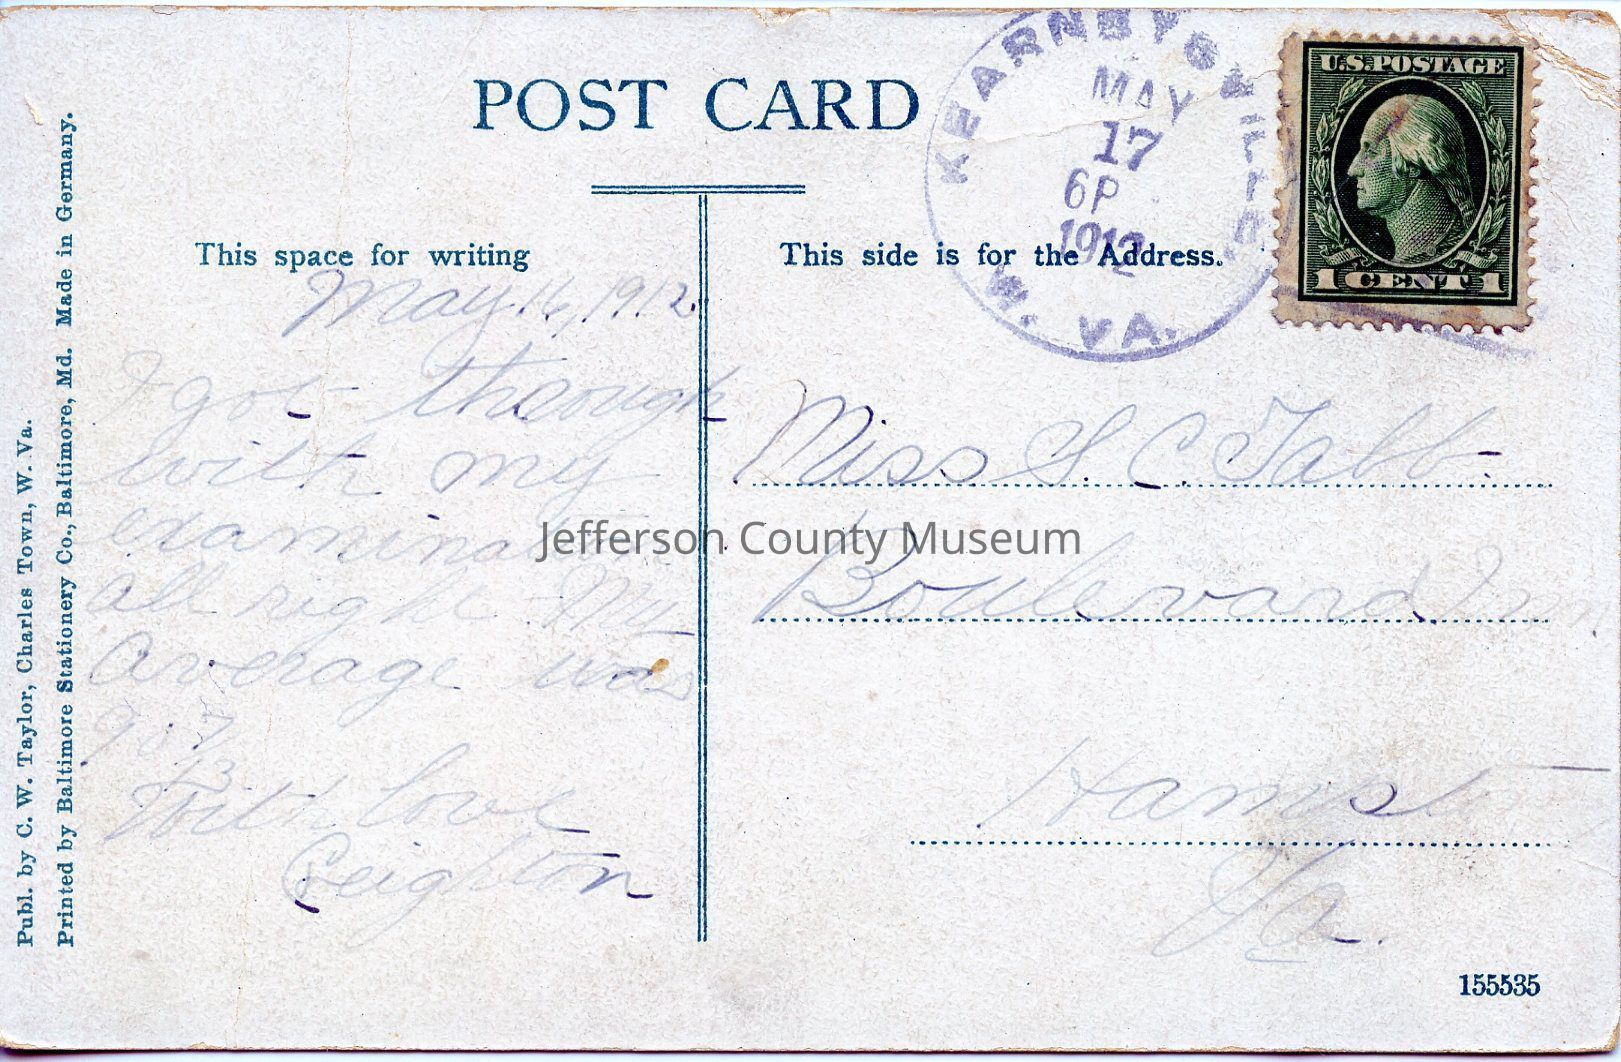 POST CARD
KEARNEYSVILLE
MAY
17
6P
1912
W. VA.
U.S. POSTAGE
1 CENT 1
This space for writing
This side is for the Address.
May 16, 1912.
I got through
with my
examination
all right. My
average was
With love
Creighton
Miss S. C. Tabb
Boulevard Inn
Hampton
Va.
Jefferson County Museum
Publ. by C. W. Taylor, Charles Town, W. Va.
Printed by Baltimore Stationery Co., Baltimore, Md. Made in Germany.
155535